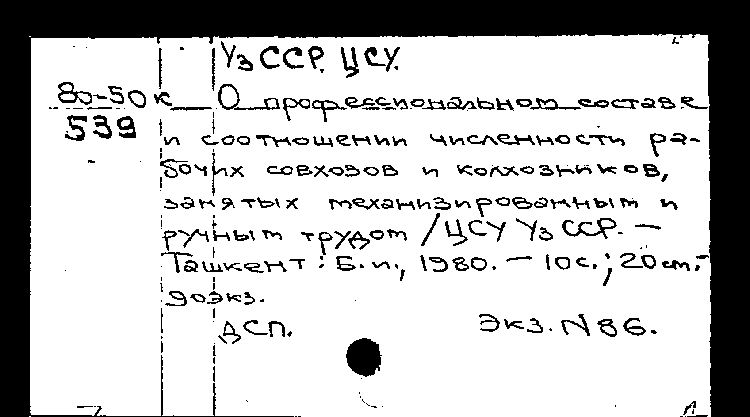 Уз ССР. ЦСУ.
80-50к О профессиональном составе
539 и соотношении численности ра-
бочих совхозов и колхозников,
занятых механизированным и
ручным трудом / ЦСУ Уз ССР. —
Ташкент: Б.и., 1980. — 10с.; 20см.-
90экз.
ДСП. Экз. N86.